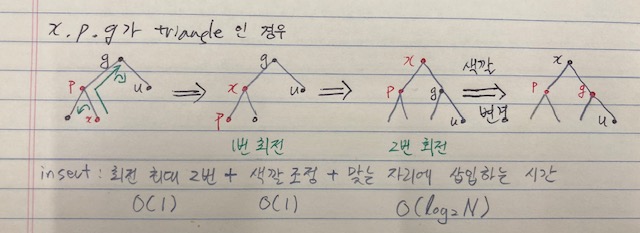 x, p, g가 triangle 인 경우
g g x 색깔 x
p u ⇒ x u ⇒ p g ⇒ p g
x p 변경
u u
1번 회전 2번 회전
insert : 회전 최대 2번 + 색깔 조정 + 맞는 자리에 삽입하는 시간
O(1) O(1) O(log₂N)